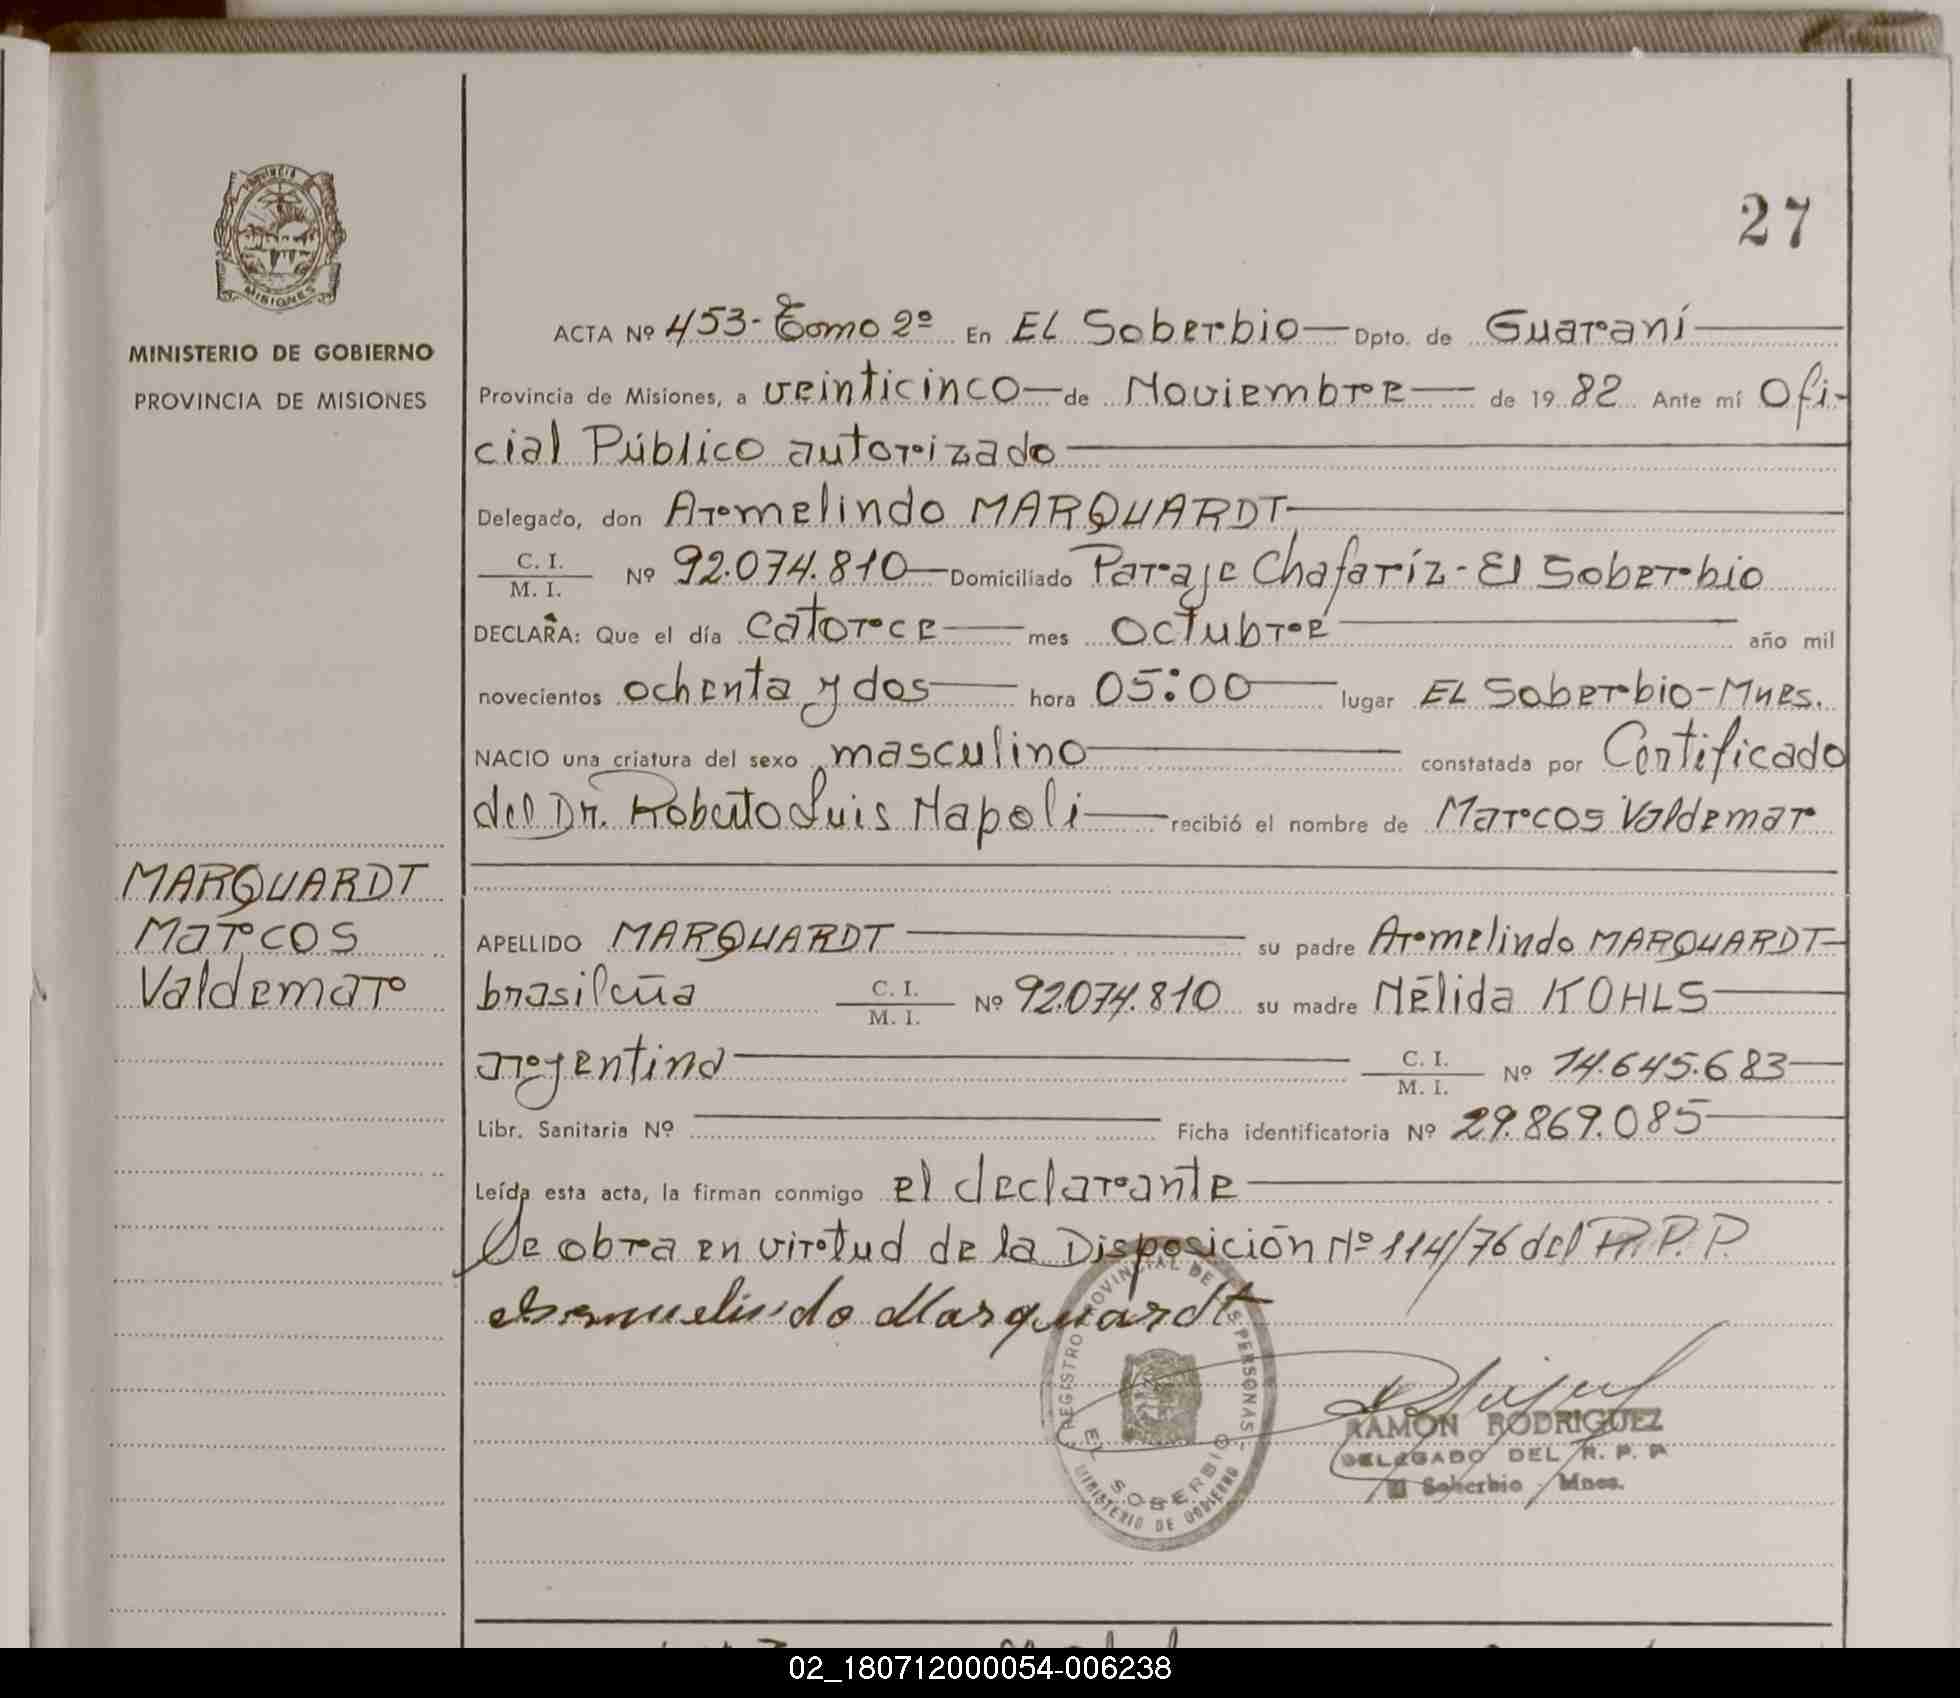 27
PROVINCIA
MISIONES
MINISTERIO DE GOBIERNO
PROVINCIA DE MISIONES
ACTA Nº 453- Tomo 2º En EL Soberbio Dpto. de Guaraní
Provincia de Misiones, a veinticinco de Noviembre de 19 82 Ante mí Ofi-
cial Público autorizado
Delegado, don Armelindo MARQUARDT
C. I.
M. I. Nº 92.074.810 Domiciliado Paraje Chafaríz - El Soberbio
DECLARA: Que el día catorce mes octubre año mil
novecientos ochenta y dos hora 05:00 lugar EL Soberbio-Mnes.
NACIO una criatura del sexo masculino constatada por Certificado
del Dr. Roberto Luis Napoli recibió el nombre de Marcos Valdemar
MARQUARDT
Marcos
Valdemar
APELLIDO MARQUARDT su padre Armelindo MARQUARDT
brasileña C. I.
M. I. Nº 92.074.810 su madre Nélida KOHLS
argentina C. I.
M. I. Nº 14.645.683
Libr. Sanitaria Nº Ficha identificatoria Nº 29.869.085
Leída esta acta, la firman conmigo el declarante
Se obra en virtud de la Disposición Nº 114/76 del R.P.P.
Armelindo Marquardt
REGISTRO PROVINCIAL DE LAS PERSONAS
EL SOBERBIO
MINISTERIO DE GOBIERNO
RAMON RODRIGUEZ
DELEGADO DEL R. P. P.
El Soberbio - Mnes.
02_180712000054-006238